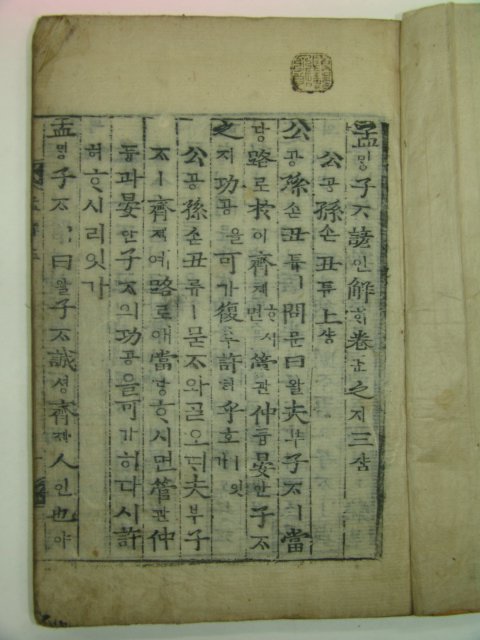 孟ᄆᆡᆼ子ᄌᆞ諺언解ᄒᆡ卷권之지三삼
公공孫손丑튜上샹
公공孫손丑튜ㅣ問문曰왈夫부子ᄌᆞㅣ當
당路로於어齊졔ᄒᆞ시면管관仲듕晏안子ᄌᆞ
之지功공을可가復부許허乎호ㅣ잇가
公공孫손丑튜ㅣ묻ᄌᆞ와ᄀᆞᆯ오ᄃᆡ夫부子
ᄌᆞㅣ齊졔예路로애當당ᄒᆞ시면管관仲
듕과晏안子ᄌᆞ의功공을可가히다시許
허ᄒᆞ시리잇가
孟ᄆᆡᆼ子ᄌᆞㅣ曰왈子ᄌᆞㅣ誠셩齊졔人인也야